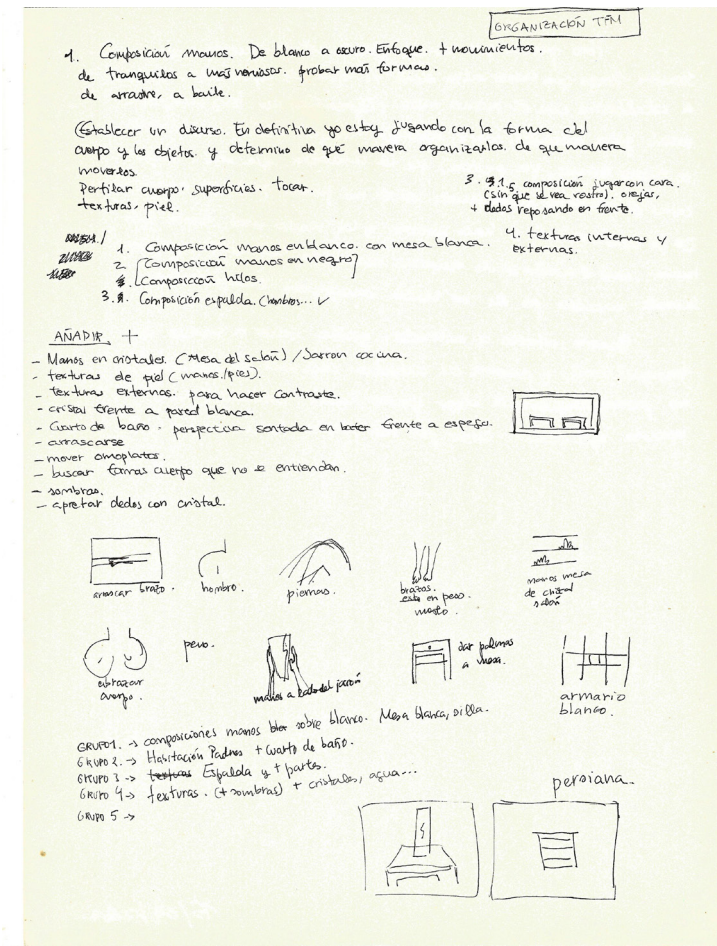 ORGANIZACIÓN TFM
1. Composición manos. De blanco a oscuro. Enfoque. + movimientos.
de tranquilos a más nerviosos. probar más formas.
de arrastre, a baile.
(Establecer un discurso. En definitiva yo estoy jugando con la forma del
cuerpo y los objetos. y determino de qué manera organizarlos. de que manera
moverlos.
Perfilar cuerpo. superficies. tocar.
texturas, piel.
3. 1.5 composición jugar con cara.
(sin que se vea rostro). orejas,
+ dedos reposando en frente.
4. texturas internas y
externas.
1. Composición manos en blanco. con mesa blanca.
2. [Composición manos en negro]
Composición hilos.
3. Composición espalda. (hombros... ✓
AÑADIR +
- Manos en cristales. (Mesa del salón) / Jarron cocina.
- texturas de piel (manos/pies).
- texturas externas. para hacer contraste.
- cristal frente a pared blanca.
- Cuarto de baño. perspectiva sentada en frente a espejo.
- arrascarse
- mover omoplatos.
- buscar formas cuerpo que no se entiendan.
- sombras.
- apretar dedos con cristal.
arrascar brazo.
hombro.
piernas.
brazos.
en peso
muerto.
manos mesa
de cristal
salón
abrazar
cuerpo.
pelo.
manos a lado del jarrón
dar palmas
a mesa.
armario
blanco.
GRUPO 1. -> composiciones manos sobre blanco. Mesa blanca, silla.
GRUPO 2. -> Habitación Padres + cuarto de baño.
GRUPO 3 -> texturas Espalda y + partes.
GRUPO 4 -> texturas. (+ sombras) + cristales, agua...
GRUPO 5 ->
persiana.